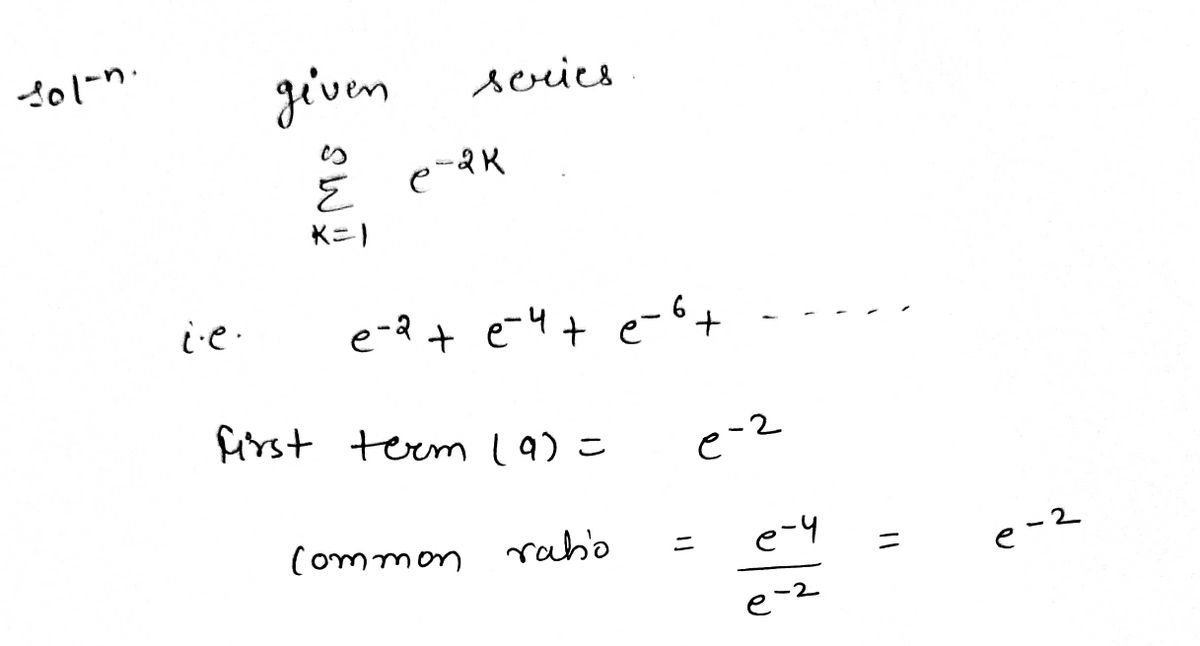 sol-n. given series.
∞
Σ e^{-2K}
K=1
i.e. e^{-2} + e^{-4} + e^{-6} + - - - - -
first term (a) = e^{-2}
common ratio = \frac{e^{-4}}{e^{-2}} = e^{-2}